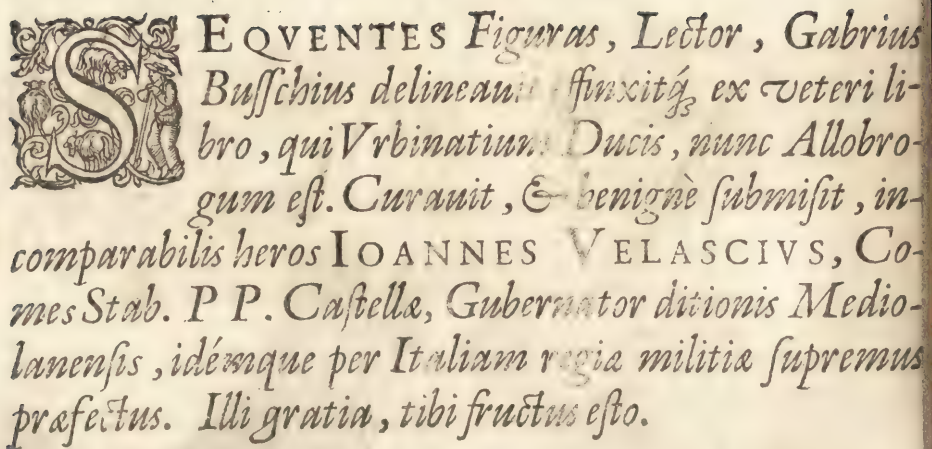 SEQVENTES Figuras, Lector, Gabrius
Buſſchius ex veteri li-
bro, qui Vrbinatium Ducis, nunc Allobro-
gum eſt. Curauit, & benignè ſubmiſit, in-
comparabilis heros IOANNES VELASCIVS, Co-
mes Stab. P P. Caſtellæ, Gubernator ditionis Medio-
lanenſis, idémque per Italiam regiæ militiæ ſupremus
præfectus. Illi gratia, tibi fructus eſto.